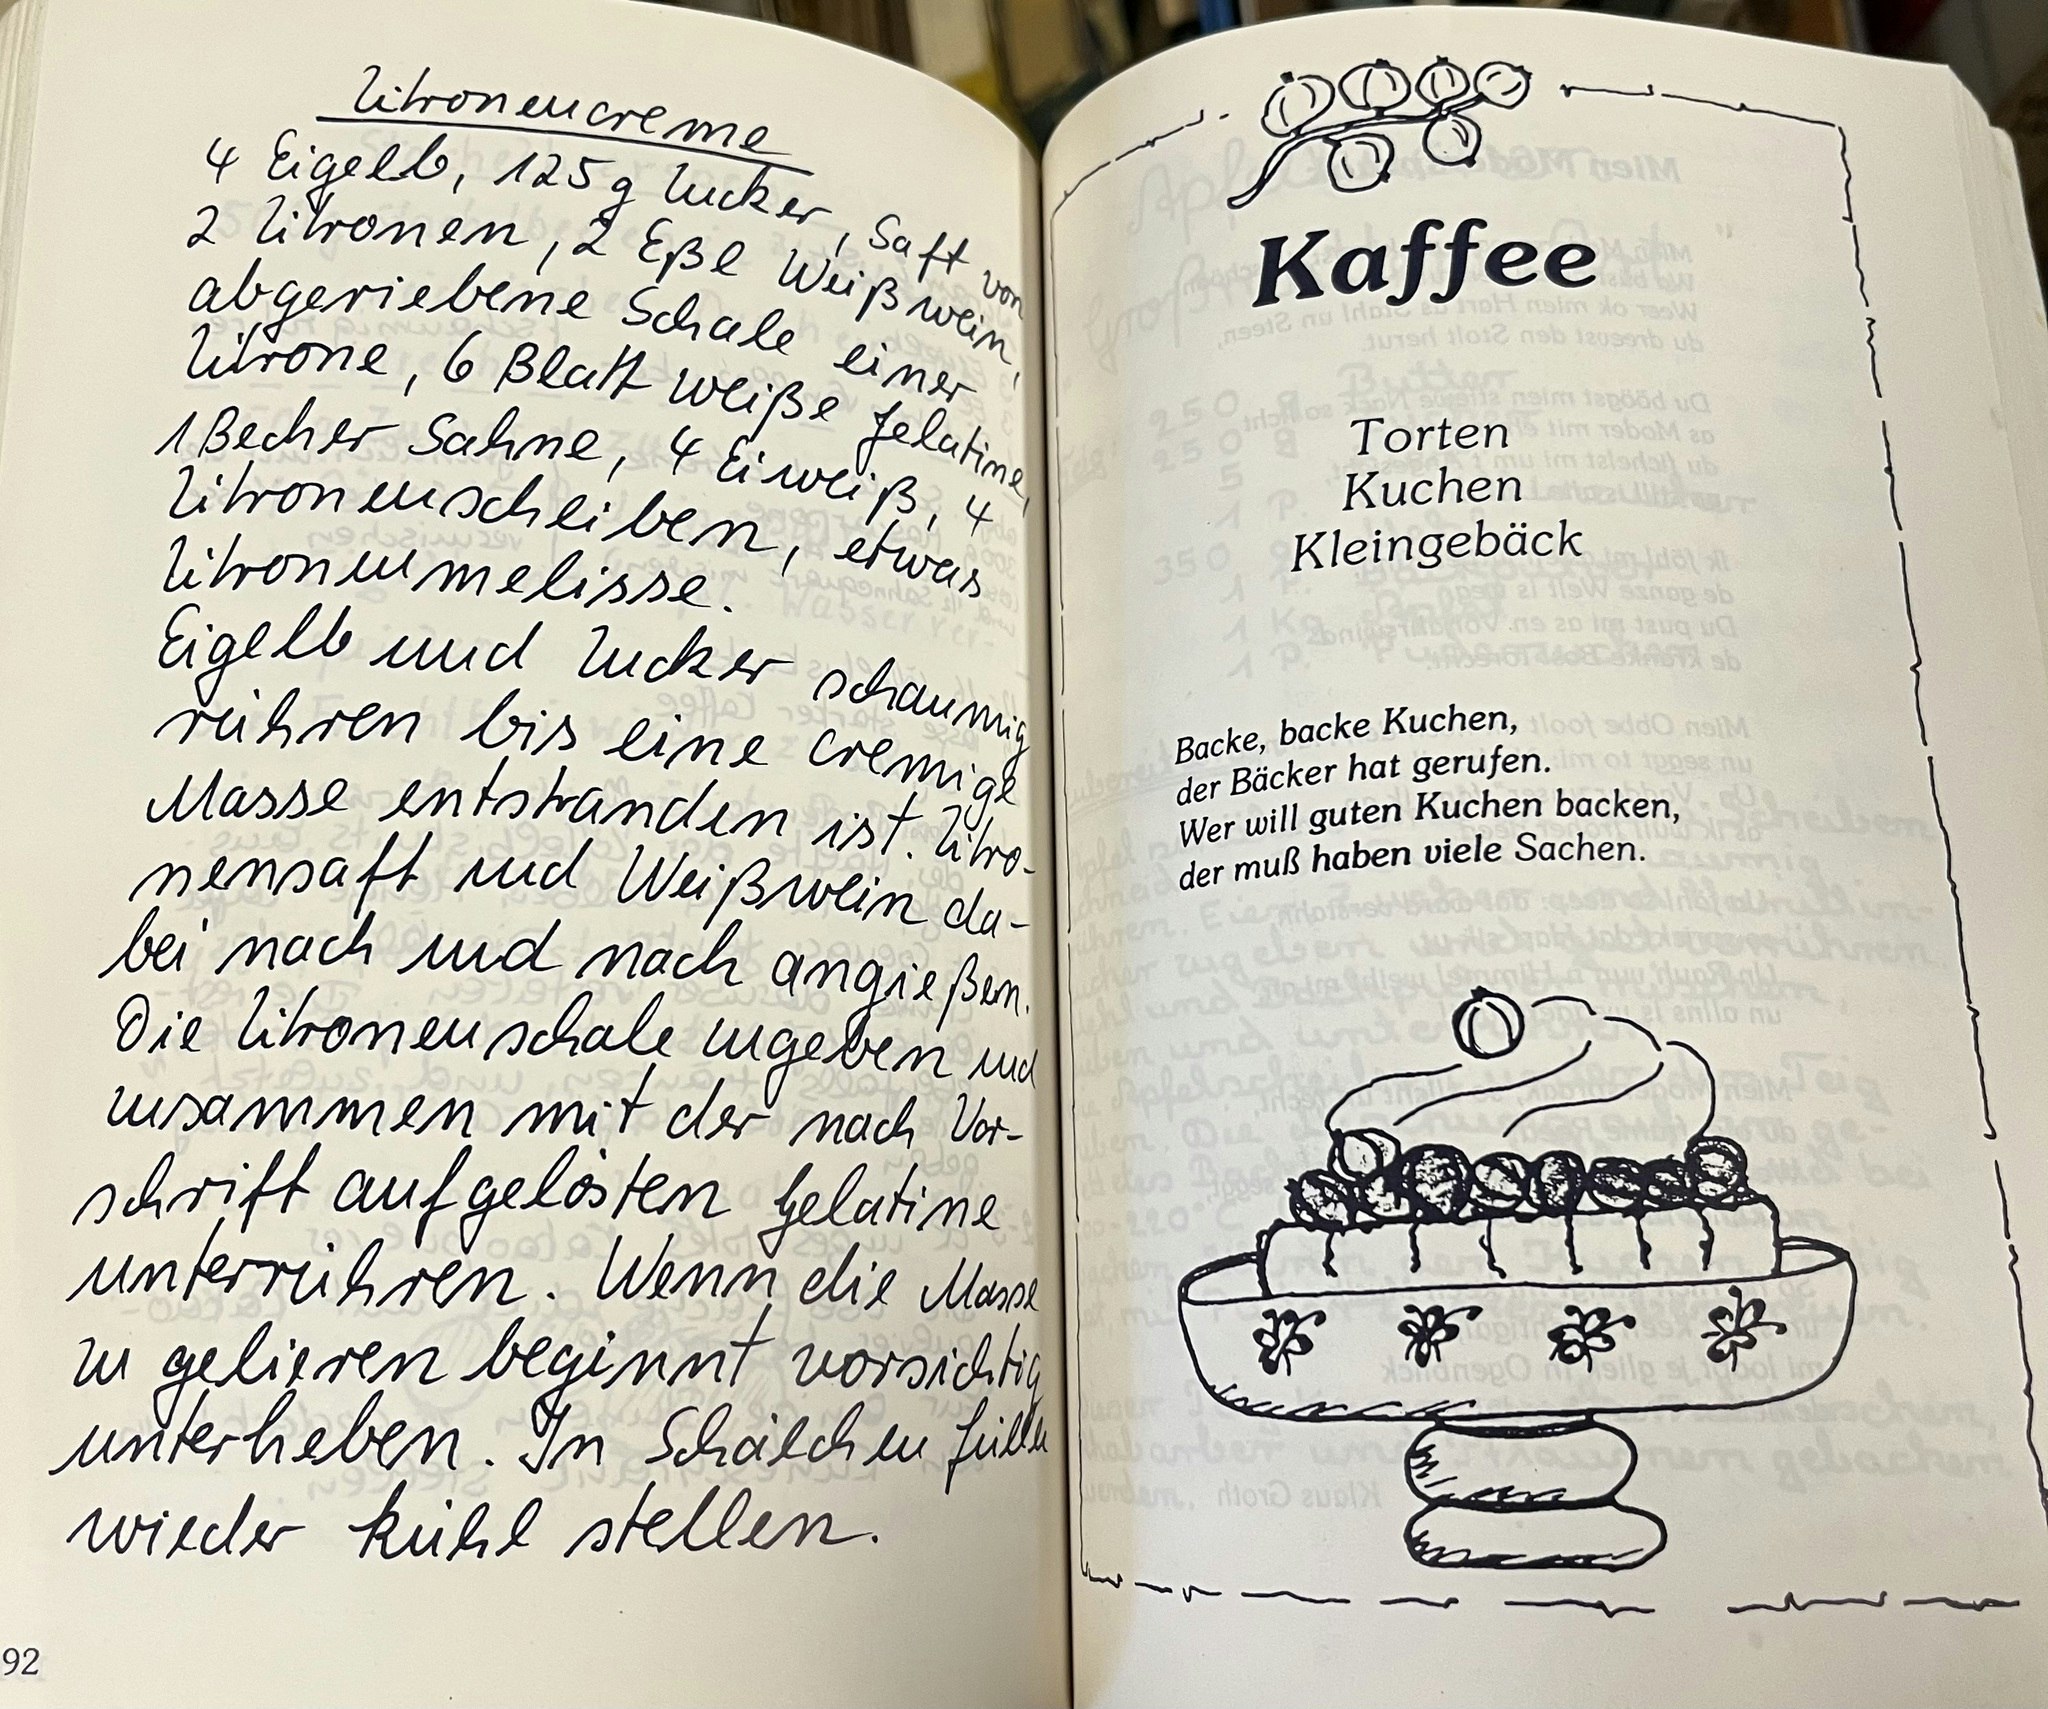 Zitronencreme
4 Eigelb, 125 g Zucker, Saft von
2 Zitronen, 2 Eßl Weißwein,
abgeriebene Schale einer
Zitrone, 6 Blatt weiße Gelatine,
1 Becher Sahne, 4 Eiweiß, 4
Zitronenscheiben, etwas
Zitronenmelisse.
Eigelb und Zucker schaumig
rühren bis eine cremige
Masse entstanden ist. Zitro-
nensaft und Weißwein da-
bei nach und nach angießen.
Die Zitronenschale zugeben und
zusammen mit der nach Vor-
schrift aufgelösten Gelatine
unterrühren. Wenn die Masse
zu gelieren beginnt vorsichtig
unterheben. In Schälchen füllen
wieder kühl stellen.
92
Kaffee
Torten
Kuchen
Kleingebäck
Backe, backe Kuchen,
der Bäcker hat gerufen.
Wer will guten Kuchen backen,
der muß haben viele Sachen.